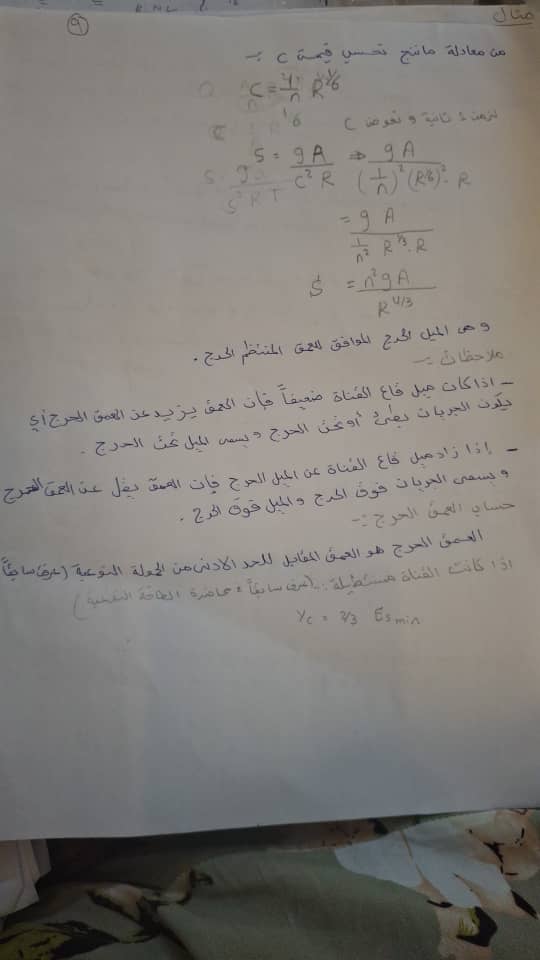 مثال
٩
من معادلة ماننج تحسب قيمة C :-
C = 1/n R^1/6
ثانية ونعوض C
S = gA / C² R ⇒ gA / (1/n)² (R^1/6)² · R
= gA / 1/n² R^1/3 · R
S = n² gA / R^4/3
وهى الميل الحرج الموافق للعمق المنتظم الحرج .
ملاحظات :-
- اذا كان ميل قاع القناة ضعيفاً فإن العمق يزيد عن العمق الحرج أي
يكون الجريان بطئ أو تحت الحرج ويسمى الميل تحت الحرج .
- إذا زاد ميل قاع القناة عن الميل الحرج فإن العمق يقل عن العمق الحرج
ويسمى الجريان فوق الحرج والميل فوق الحرج .
حساب العمق الحرج :-
العمق الحرج هو العمق المقابل للحد الادنى من الحمولة النوعية (عرف سابقاً
اذا كانت القناة مستطيلة ... (عرف سابقاً محاضرة الطاقة النوعية)
Yc = 2/3 Es min